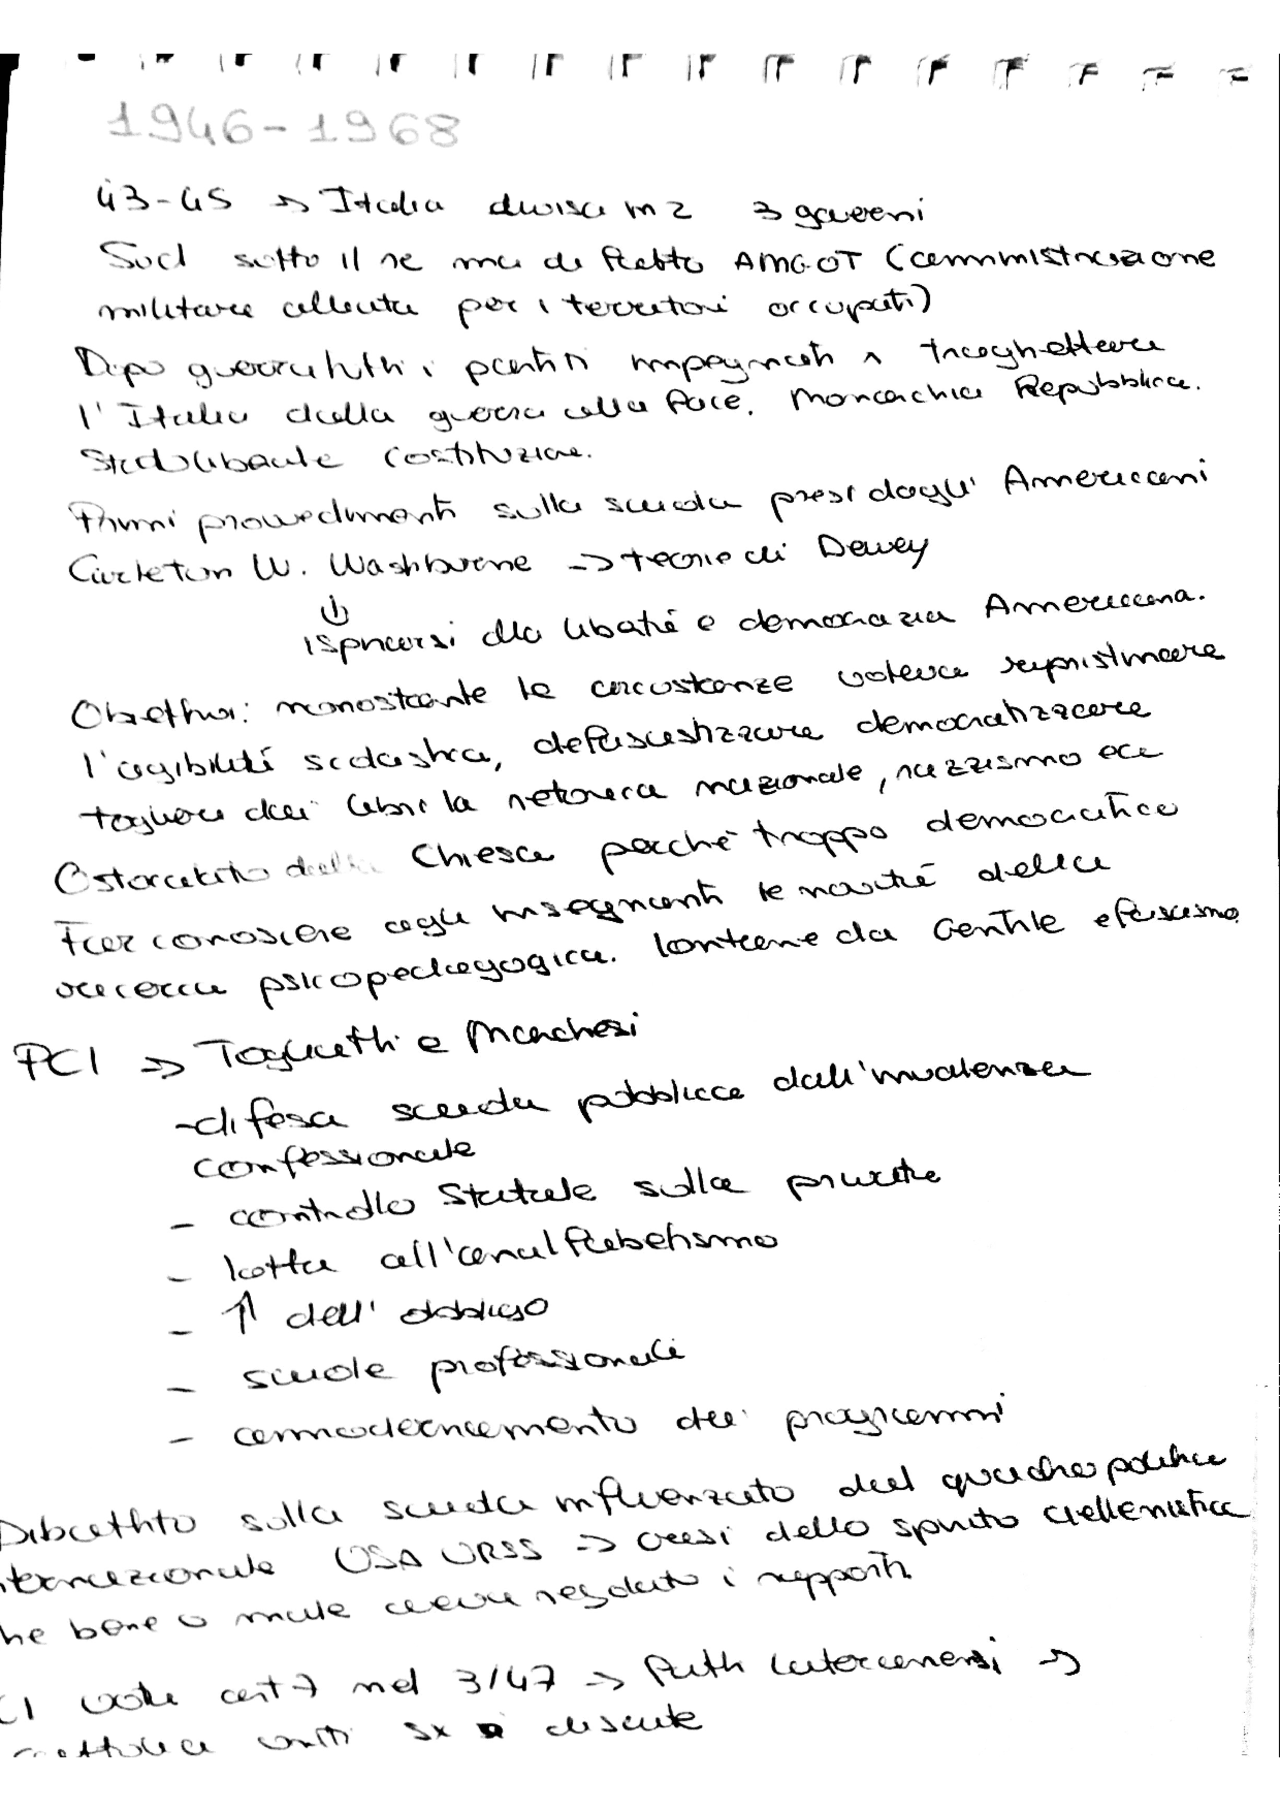 1946-1968
43-45 → Italia divisa in 2 3 governi
Sud sotto il re ma di fatto AMGOT (amministrazione
militare alleata per i territori occupati)
Dopo guerra tutti i partiti impegnati a traghettare
l'Italia dalla guerra alla pace. Monarchia Repubblica.
Stabilire Costituzione.
Primi provvedimenti sulla scuola presi dagli Americani
Carleton W. Washburne → teorie di Dewey
↓
ispirarsi alla libertà e democrazia Americana.
Obiettivi: nonostante le circostanze voleva ripristinare
l'agibilità scolastica, defascistizzare democratizzare
togliere dai libri la retorica nazionale, nazzismo ecc
Ostacolato dalla Chiesa perché troppo democratico
Far conoscere agli insegnanti le novità della
ricerca psicopedagogica. lontane da Gentile e fascismo
PCI → Togliatti e Marchesi
- difesa scuola pubblica dall'invadenza
confessionale
- controllo Statale sulla privata
- lotta all'analfabetismo
- ↑ dell'obbligo
- scuole professionali
- ammodernamento dei programmi
Dibattito sulla scuola influenzato dal quadro politico
internazionale USA URSS → crisi dello spirito ciellenistico
che bene o male aveva regolato i rapporti.
CI vota art 7 nel 3/47 → Patti Lateranensi →
cattolica uniti sx discute